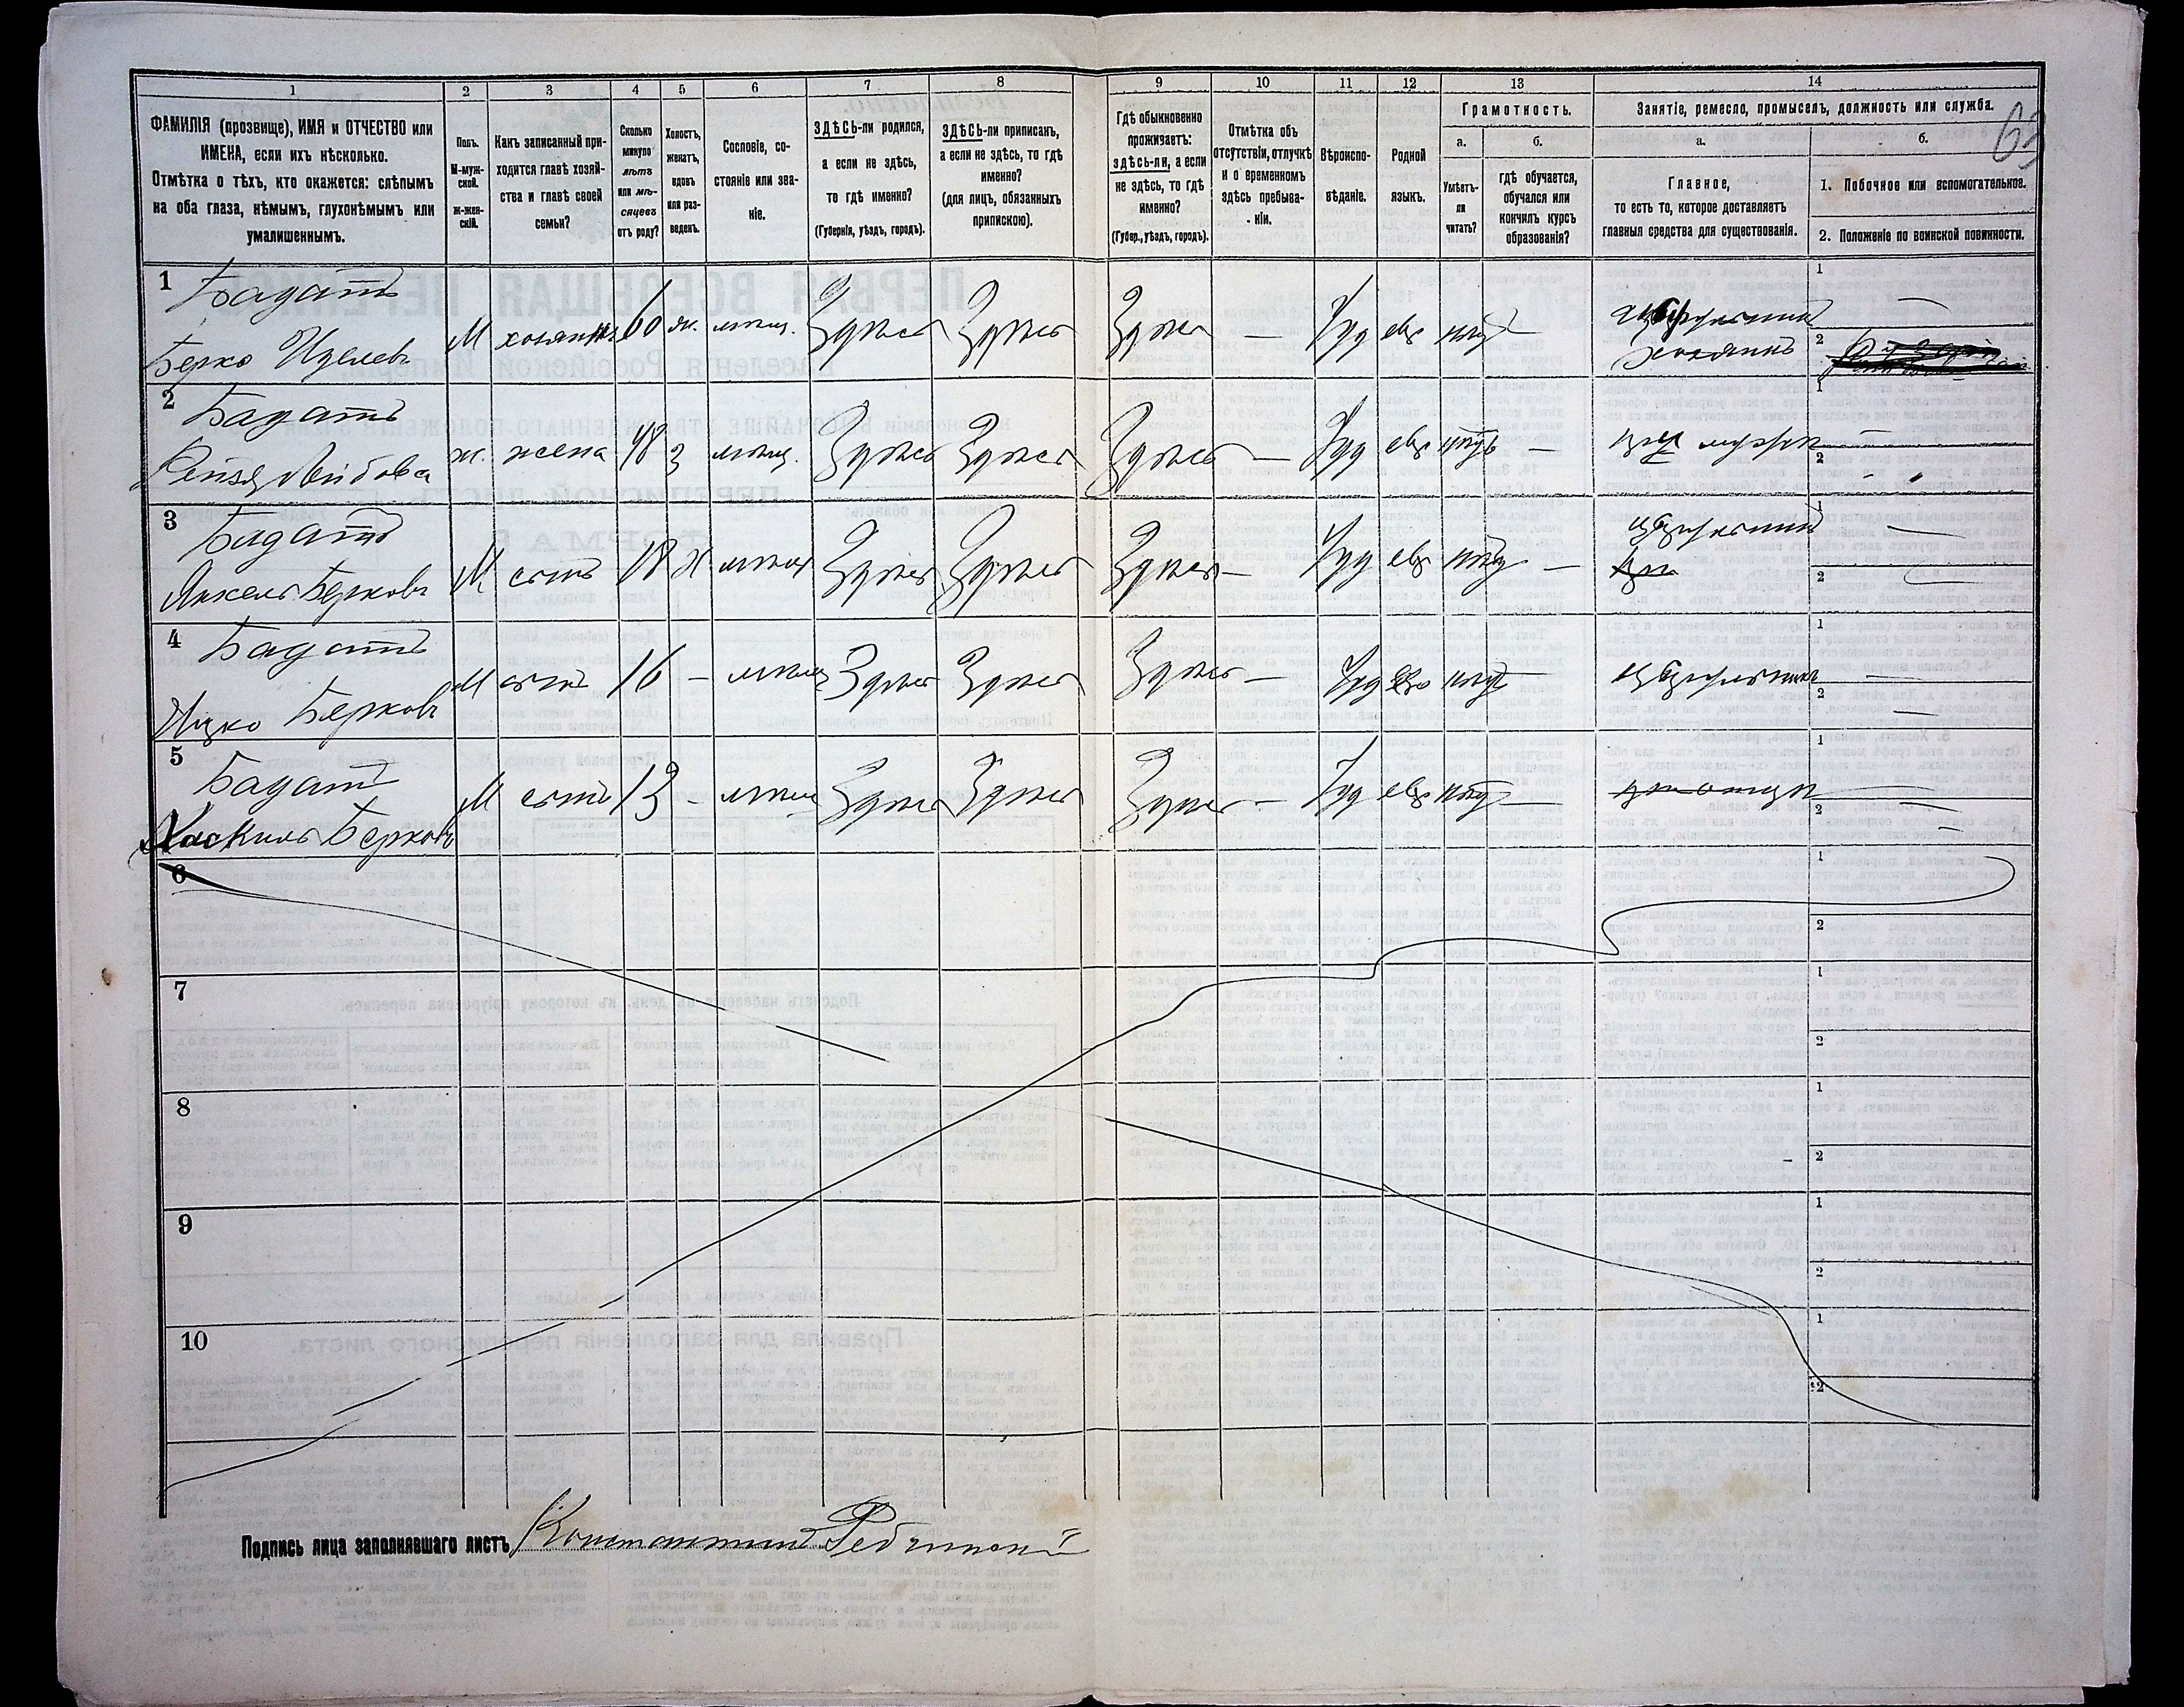 1 2 3 4 5 6 7 8 9 10 11 12 13 14
ФАМИЛІЯ (прозвище), ИМЯ и ОТЧЕСТВО или
ИМЕНА, если ихъ нѣсколько.
Отмѣтка о тѣхъ, кто окажется: слѣпымъ
на оба глаза, нѣмымъ, глухонѣмымъ или
умалишеннымъ.
Полъ.
М-муж-
ской.
ж-жен-
скій.
Какъ записанный при-
ходится главѣ хозяй-
ства и главѣ своей
семьи?
Сколько
минуло
лѣтъ
или мѣ-
сяцевъ
отъ роду?
Холостъ,
женатъ,
вдовъ
или раз-
веденъ.
Сословіе, со-
стояніе или зва-
ніе.
ЗДѢСЬ-ли родился,
а если не здѣсь,
то гдѣ именно?
(Губернія, уѣздъ, городъ).
ЗДѢСЬ-ли приписанъ,
а если не здѣсь, то гдѣ
именно?
(для лицъ, обязанныхъ
припискою).
Гдѣ обыкновенно
проживаетъ:
здѣсь-ли, а если
не здѣсь, то гдѣ
именно?
(Губер., уѣздъ, городъ).
Отмѣтка объ
отсутствіи, отлучкѣ
и о временномъ
здѣсь пребыва-
ніи.
Вѣроиспо-
вѣданіе.
Родной
языкъ.
Грамотность.
а. б.
Умѣетъ-
ли
читать?
гдѣ обучается,
обучался или
кончилъ курсъ
образованія?
Занятіе, ремесло, промыселъ, должность или служба.
63
а. б.
Главное,
то есть то, которое доставляетъ
главныя средства для существованія.
1. Побочное или вспомогательное.
2. Положеніе по воинской повинности.
1 Багатъ
Берко М хозяинъ 60 ж. мѣщ. Здѣсь Здѣсь Здѣсь — Іуд евр нѣтъ —
хозяинъ
1 —
2
2 Багатъ
ж. жена 48 з мѣщ. Здѣсь Здѣсь Здѣсь — Іуд евр нѣтъ —
1 —
2
3 Багатъ
Янкель Берковъ М сынъ 18 х мѣщ Здѣсь Здѣсь Здѣсь — Іуд евр нѣтъ —
1 —
2 —
4 Багатъ
Ицко Берковъ М сынъ 16 — мѣщ Здѣсь Здѣсь Здѣсь — Іуд евр нѣтъ
1 —
2 —
5 Багатъ
Хаскиль Берковъ М сынъ 13 — мѣщ Здѣсь Здѣсь Здѣсь — Іуд евр нѣтъ —
при отцѣ
1 —
2 —
6
1
2
7
1
2
8
1
2
9
1
2
10
1
2
Подпись лица заполнявшаго листъ Константинъ